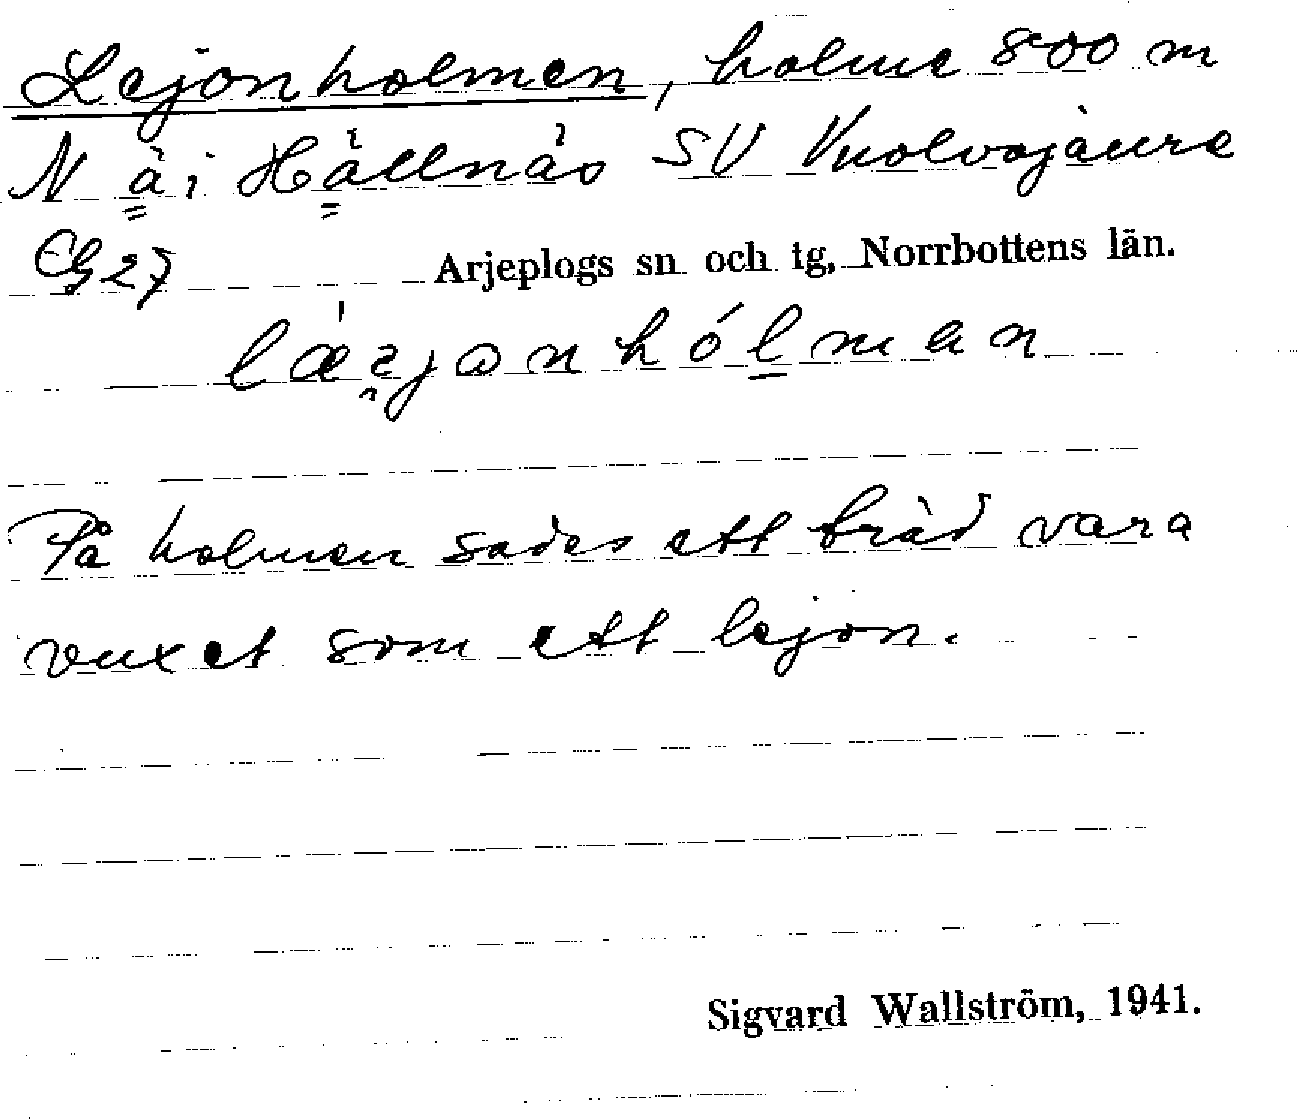 Lejonholmen, holme 800 m
N ä i Hällnäs SV Vuolvojaure
CG27 Arjeplogs sn och tg, Norrbottens län.
På holmen sades ett träd vara
vuxet som ett lejon.
Sigvard Wallström, 1941.